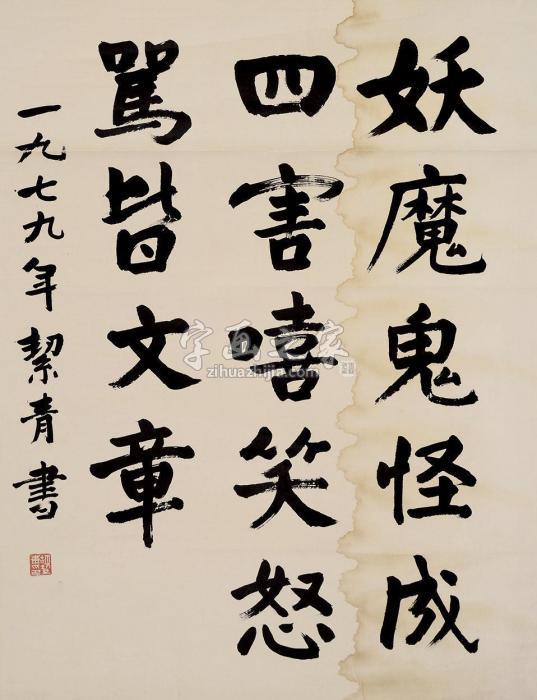 妖魔鬼怪成
四害嘻笑怒
駡皆文章
一九七九年絜青書
字画之家
zihuazhijia.com